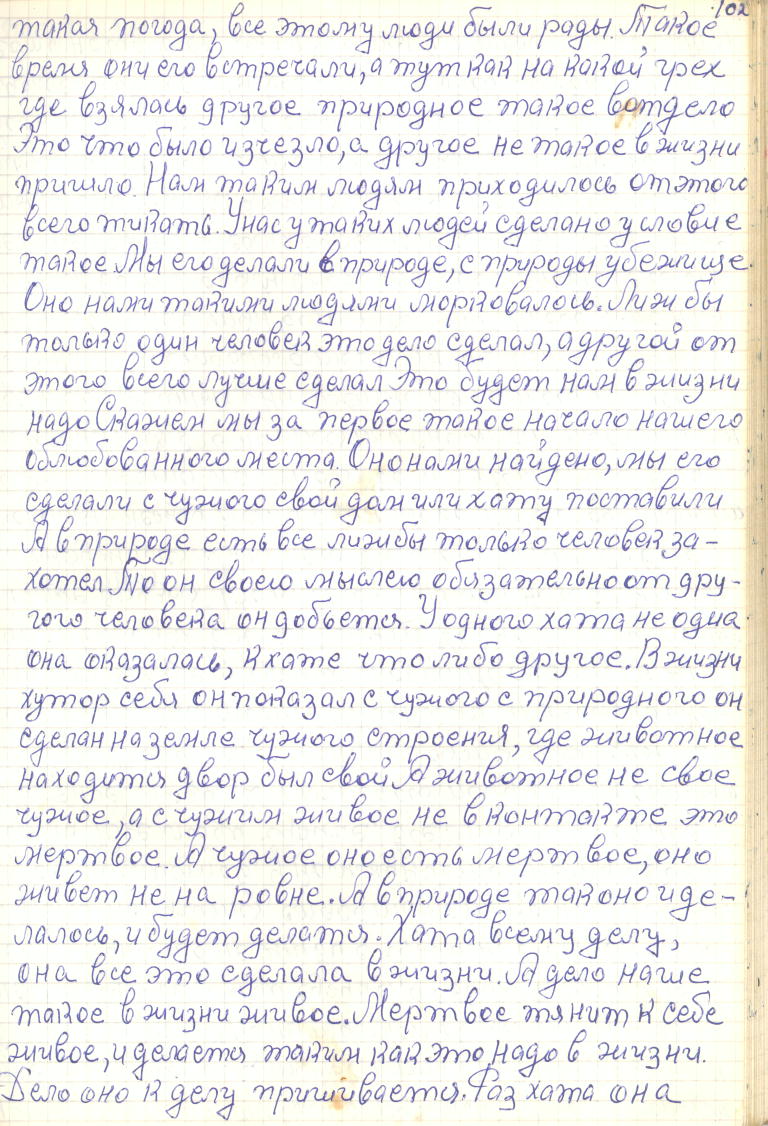 102
такая погода, все этому люди были рады. Такое
время они его встречали, а тут как на какой грех
где взялась другое природное такое вот дело
Это что было изчезло, а другое не такое в жизни
пришло. Нам таким людям приходилось от этого
всего тикать. У нас у таких людей сделано условие
такое Мы его делали в природе, с природы убежище.
Оно нами такими людями морковалось. Лиж бы
только один человек это дело сделал, а другой от
этого всего лучше сделал Это будет нам в жизни
надо Скажем мы за первое такое начало нашего
облюбованного места. Оно нами найдено, мы его
сделали с чужого свой дом или хату поставили
А в природе есть все лижбы только человек за-
хотел То он своею мыслею обязательно от дру-
гого человека он добьется. У одного хата не одна
она оказалась, к хате что либо другое. В жизни
хутор себя он показал с чужого с природного он
сделан на земле чужого строения, где животное
находится двор был свой А животное не свое
чужое, а с чужим живое не в контакте это
мертвое. А чужое оно есть мертвое, оно
живет не на ровне. А в природе так оно и де-
лалось, и будет делатся. Хата всему делу,
она все это сделала в жизни. А дело наше
такое в жизни живое. Мертвое тянит к себе
живое, и делается таким как это надо в жизни.
Дело оно к делу пришивается. Раз хата она